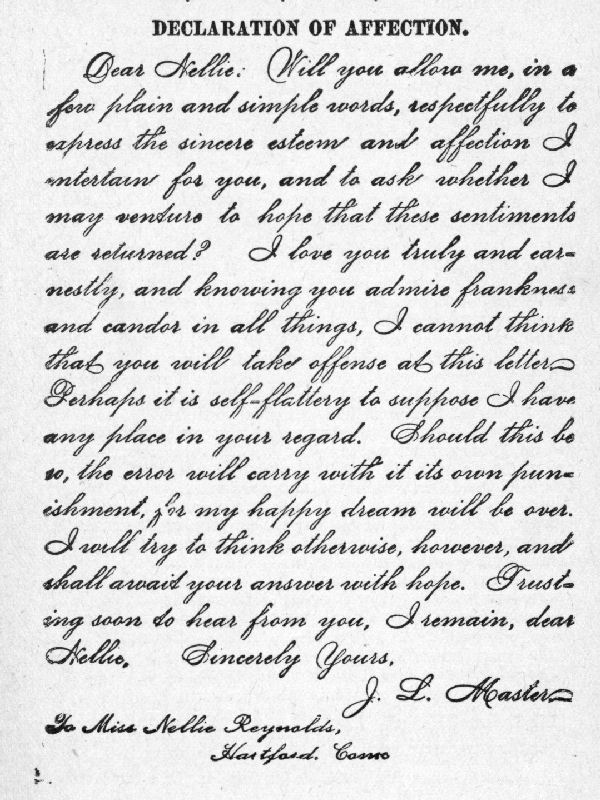 DECLARATION OF AFFECTION.
Dear Nellie: Will you allow me, in a
few plain and simple words, respectfully to
express the sincere esteem and affection I
entertain for you, and to ask whether I
may venture to hope that these sentiments
are returned? I love you truly and ear-
nestly, and knowing you admire frankness
and candor in all things, I cannot think
that you will take offense at this letter
Perhaps it is self-flattery to suppose I have
any place in your regard. Should this be
so, the error will carry with it its own pun-
ishment, for my happy dream will be over.
I will try to think otherwise, however, and
shall await your answer with hope. Trust-
ing soon to hear from you, I remain, dear
Nellie, Sincerely Yours,
J. L. Master
To Miss Nellie Reynolds,
Hartford. Conn